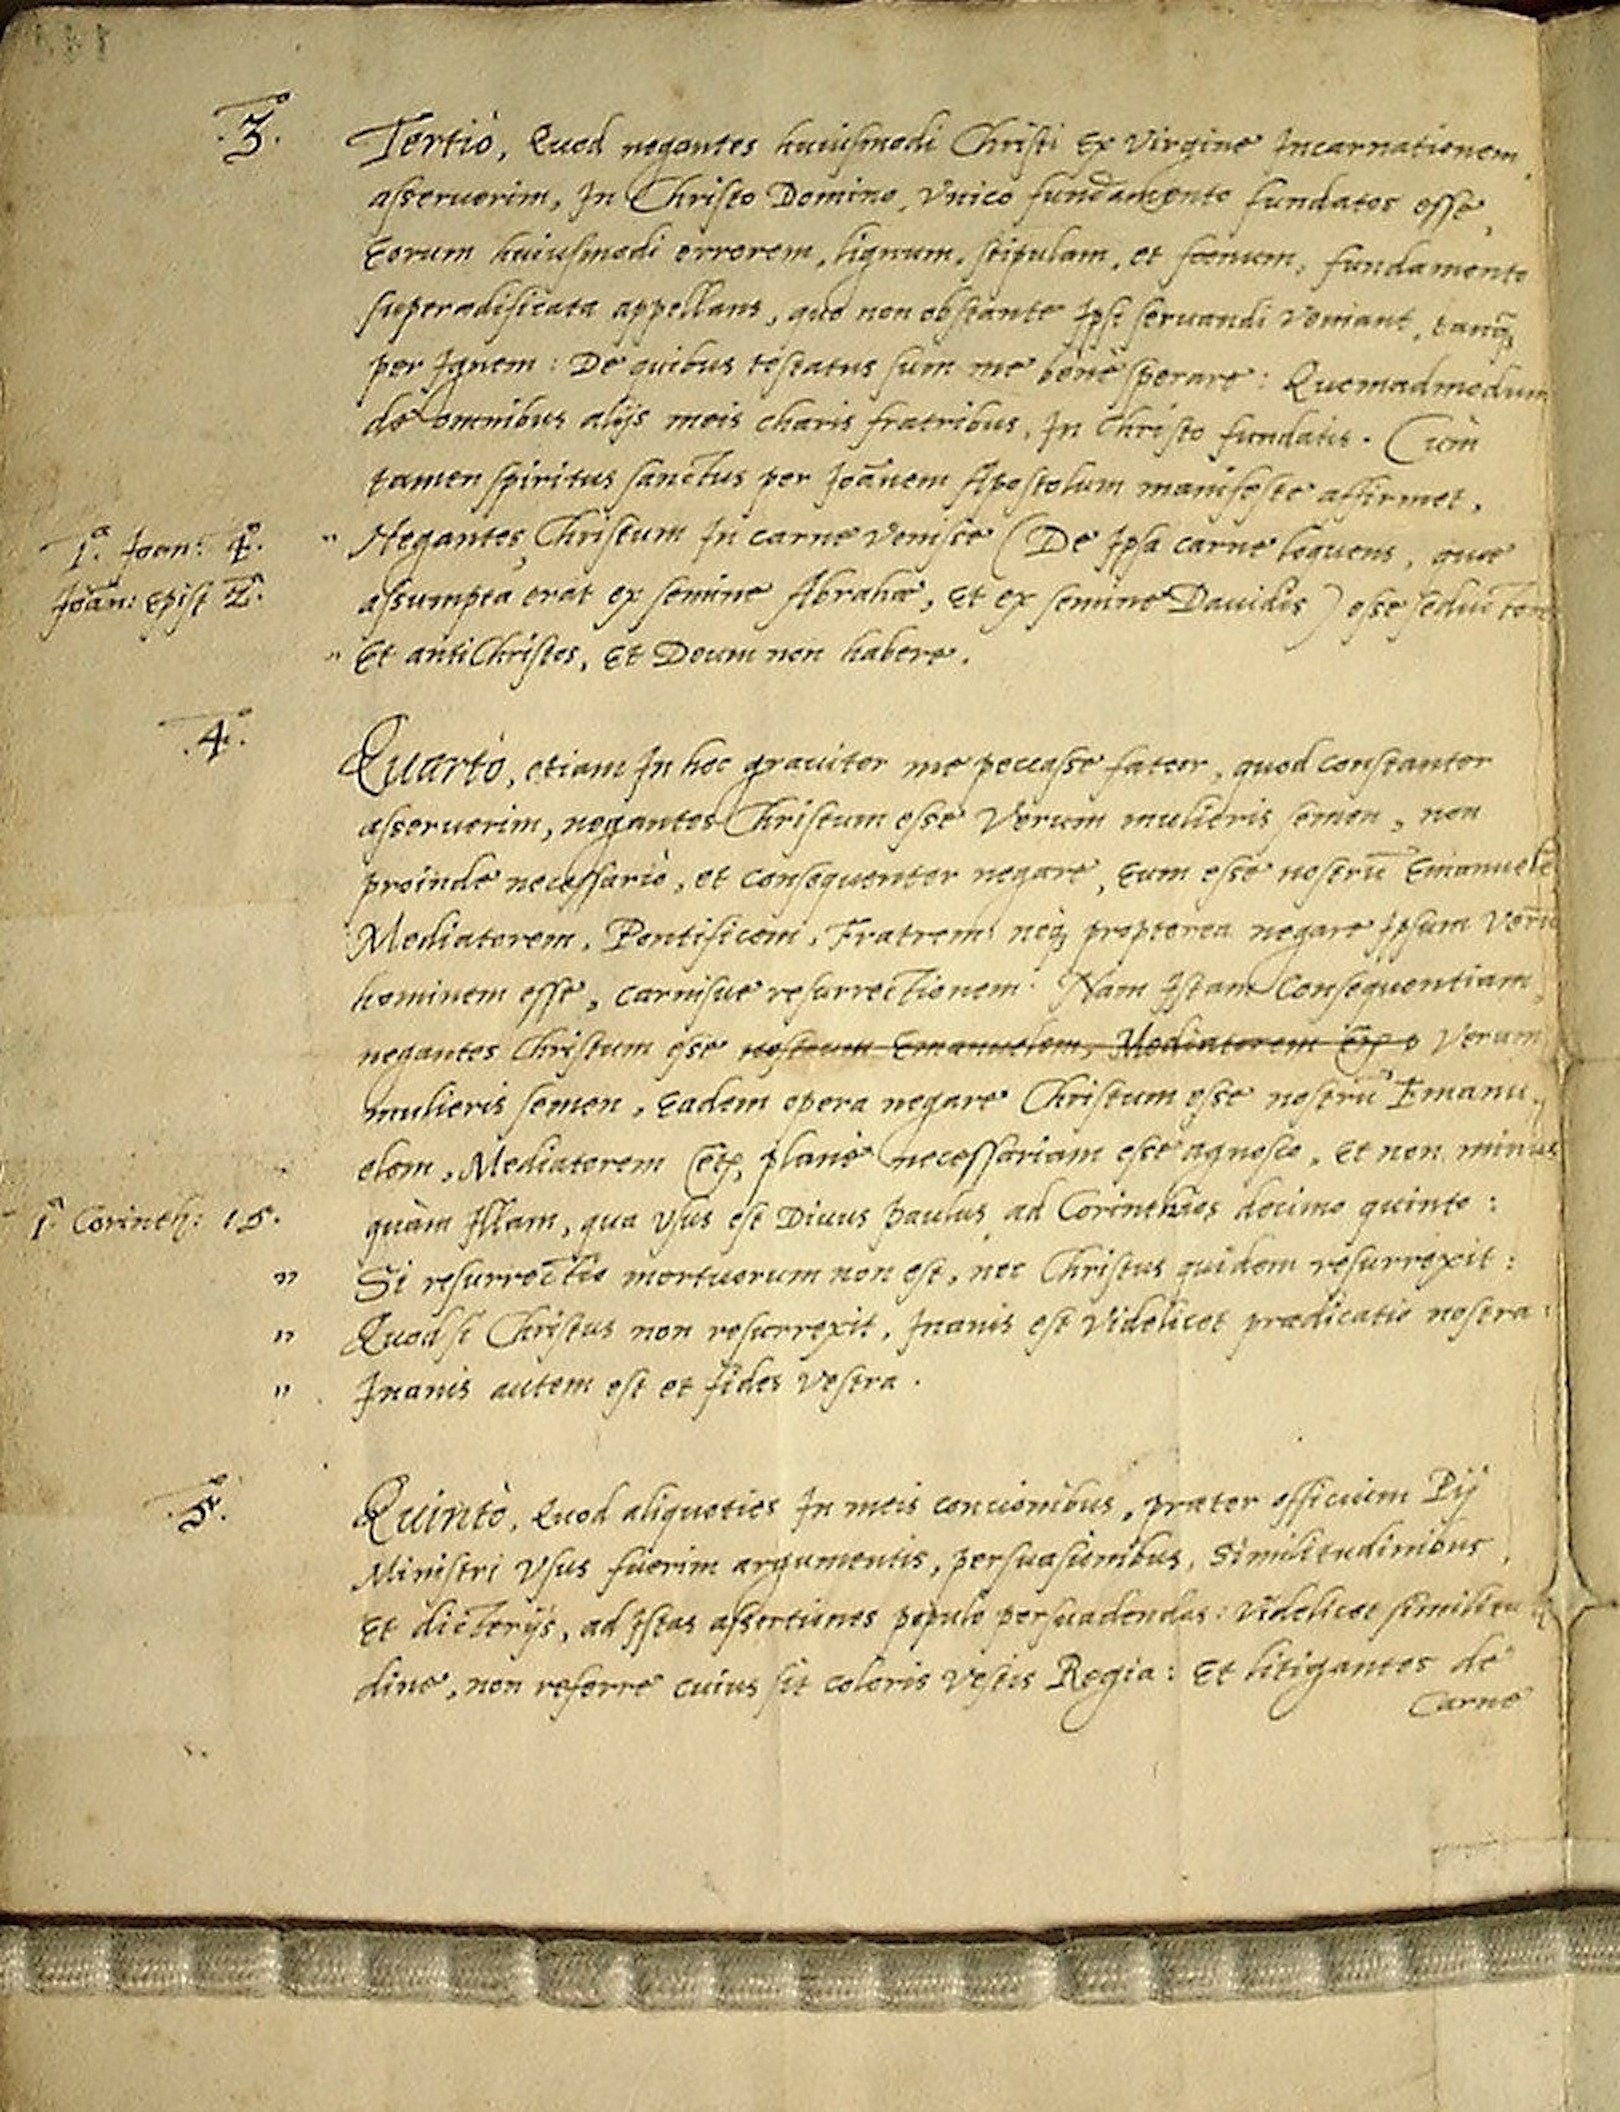 3º.
Tertiò, Quod negantes huiusmodi Christi Ex Virgine Incarnationem,
asseruerim, In Christo Domino, Vnico fundamento fundatos esse,
Eorum huiusmodi errorem, lignum, stipulam, et foenum, fundamento
superædificata appellans, quo non obstante Ipsi seruandi Veniant, tanq̃
per Ignem: De quibus testatus sum me benè sperare: Quemadmodum
de omnibus alijs meis charis fratribus, In Christo fundatis. Cùm
tamen spiritus sanctus per Joãnem Apostolum manifestè affirmet,
1ª. Joan: 4º.
" Negantes, Christum In carne Venisse (De Ipsa carne loquens, quæ
Joãn: Epist 2ª.
assumpta erat ex semine Abrahæ, Et ex semine Dauidis) esse seductores
" Et antiChristos, Et Deum non habere.
4º.
Quartò, etiam In hoc grauiter me peccasse fateor, quod constanter
asseruerim, negantes Christum esse Verum mulieris semen, non
proinde necessariò, et consequenter negare, Eum esse nostrũ Emanuelẽ
Mediatorem, Pontificem, Fratrem: neq; propterea negare Ipsum Verũ
hominem esse, carnisue resurrectionem. Nam Istam Consequentiam,
negantes Christum esse nostrum Emanuelem, Mediatorem Verum
mulieris semen, Eadem opera negare Christum esse nostrũ Emanu-
elem, Mediatorem etc, planè necessariam esse agnosco, Et non minus
1ª. Corinth: 15.
quàm Illam, qua Vsus est Diuus Paulus, ad Corinthios decimo quinto:
" Si resurrectio mortuorum non est, nec Christus quidem resurrexit:
" Quodsi Christus non resurrexit, Inanis est Videlicet prædicatio nostra:
" Inanis autem est et fides Vestra.
5º.
Quintò, Quod aliquoties In meis concionibus, præter officium Pij
Ministri Vsus fuerim argumentis, persuasionibus, Similitudinibus,
Et dicterijs, ad Istas assertiones populo persuadendas: Videlicet similitu-
dine, non referre cuius sit coloris Vestis Regia: Et litigantes de
Carne